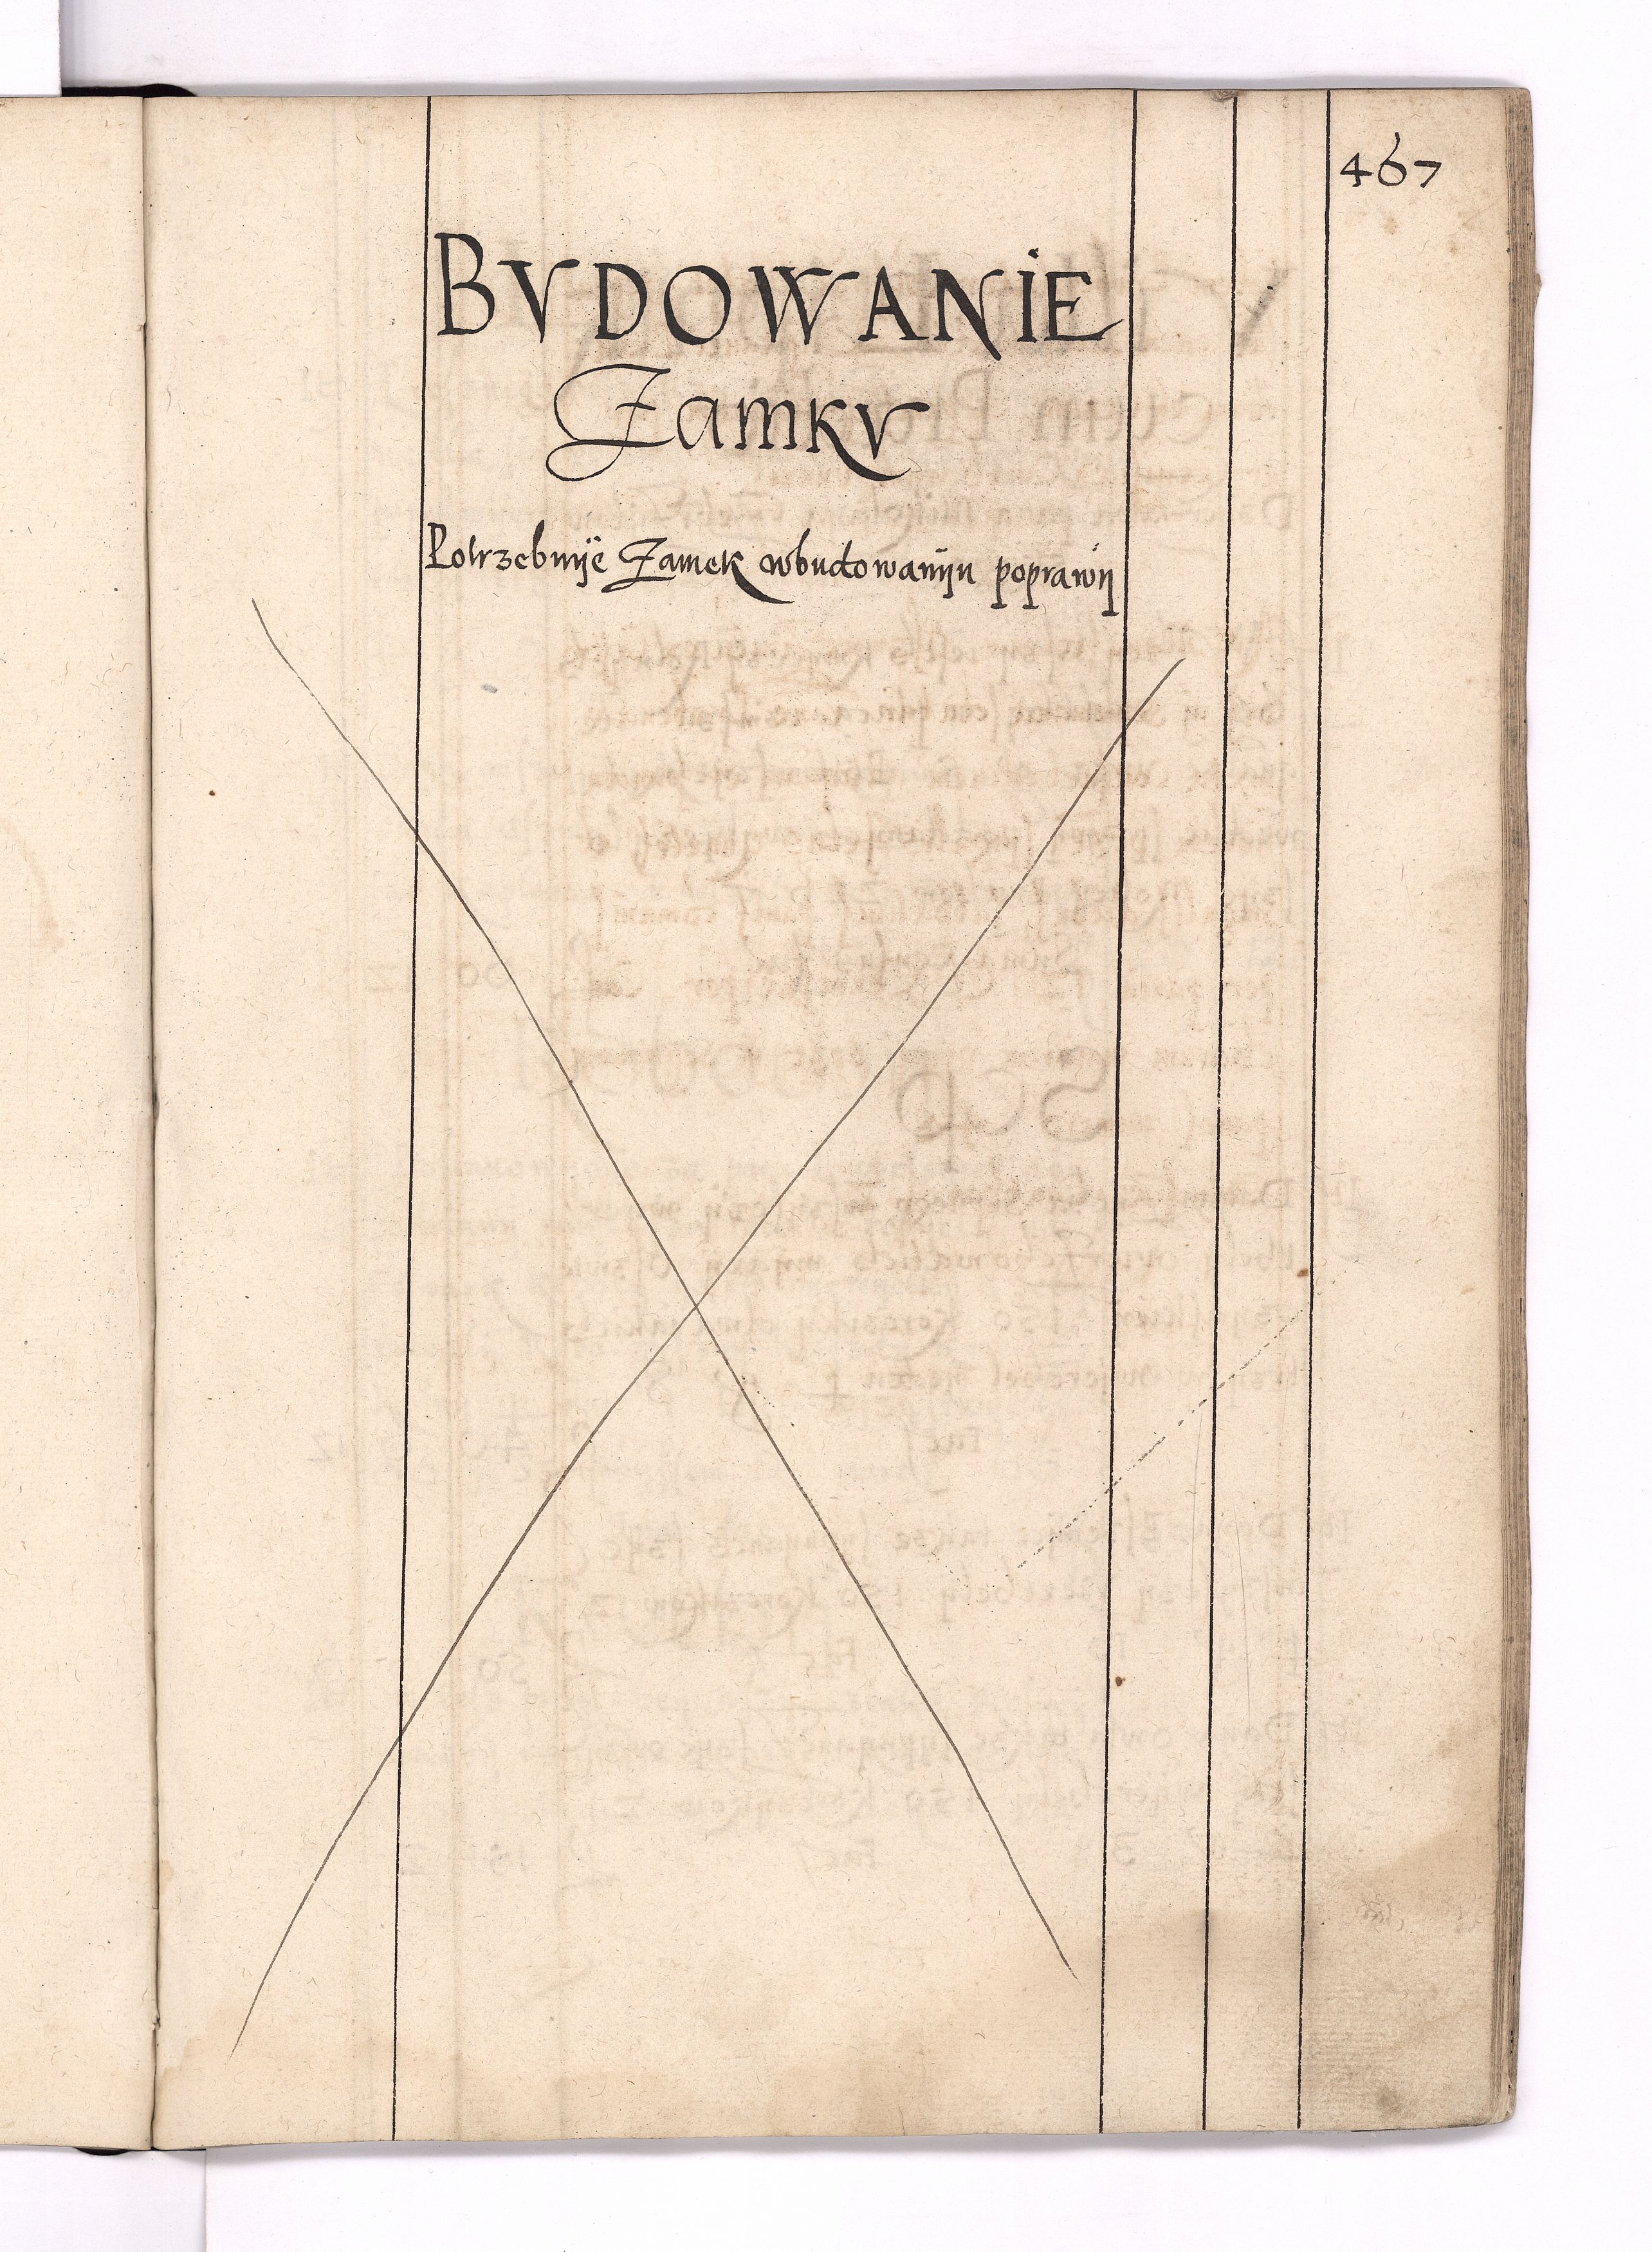 467
BVDOWANIE
ZamKV
Potrzebuÿe Zamek wbudowanÿu poprawÿ